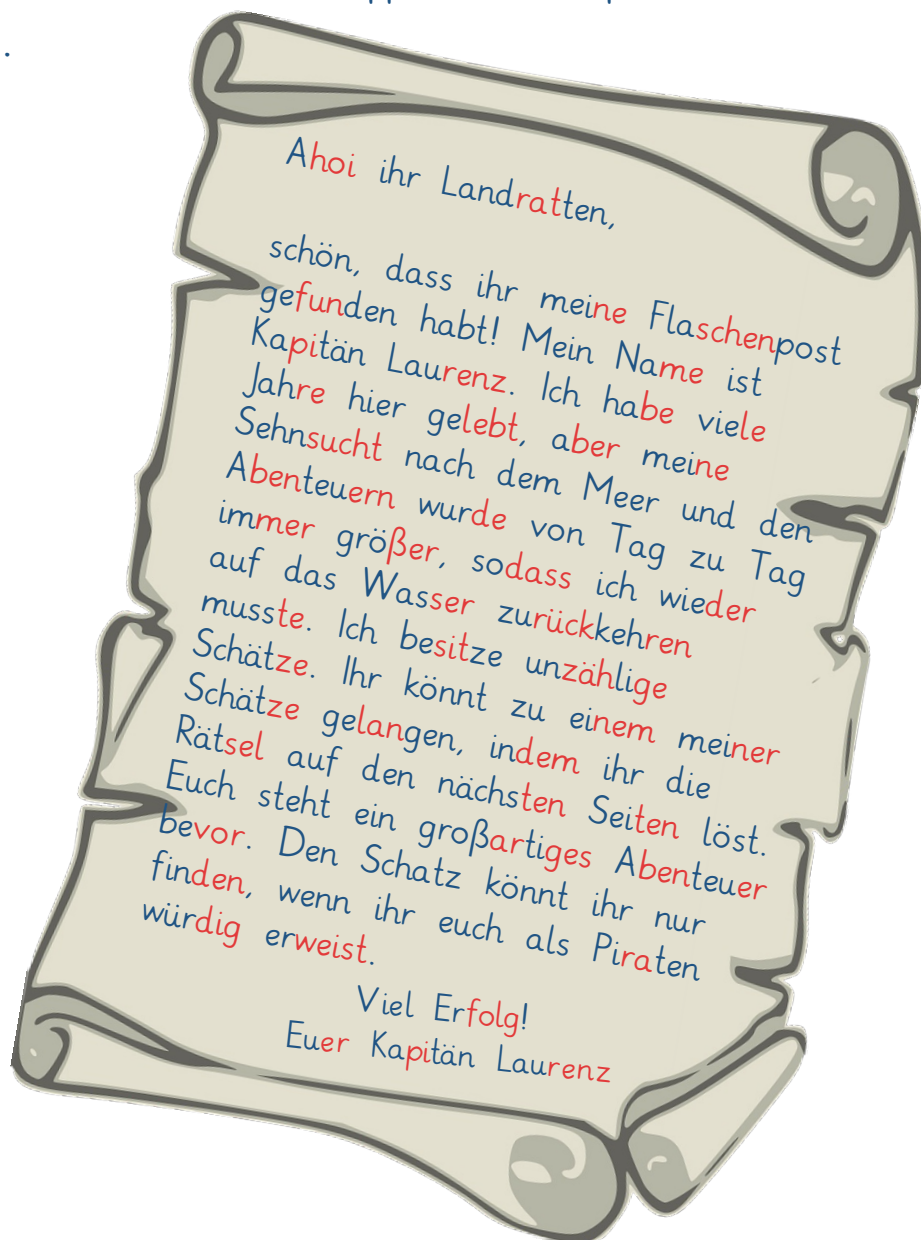 Ahoi ihr Landratten,
schön, dass ihr meine Flaschenpost
gefunden habt! Mein Name ist
Kapitän Laurenz. Ich habe viele
Jahre hier gelebt, aber meine
Sehnsucht nach dem Meer und den
Abenteuern wurde von Tag zu Tag
immer größer, sodass ich wieder
auf das Wasser zurückkehren
musste. Ich besitze unzählige
Schätze. Ihr könnt zu einem meiner
Schätze gelangen, indem ihr die
Rätsel auf den nächsten Seiten löst.
Euch steht ein großartiges Abenteuer
bevor. Den Schatz könnt ihr nur
finden, wenn ihr euch als Piraten
würdig erweist.
Viel Erfolg!
Euer Kapitän Laurenz